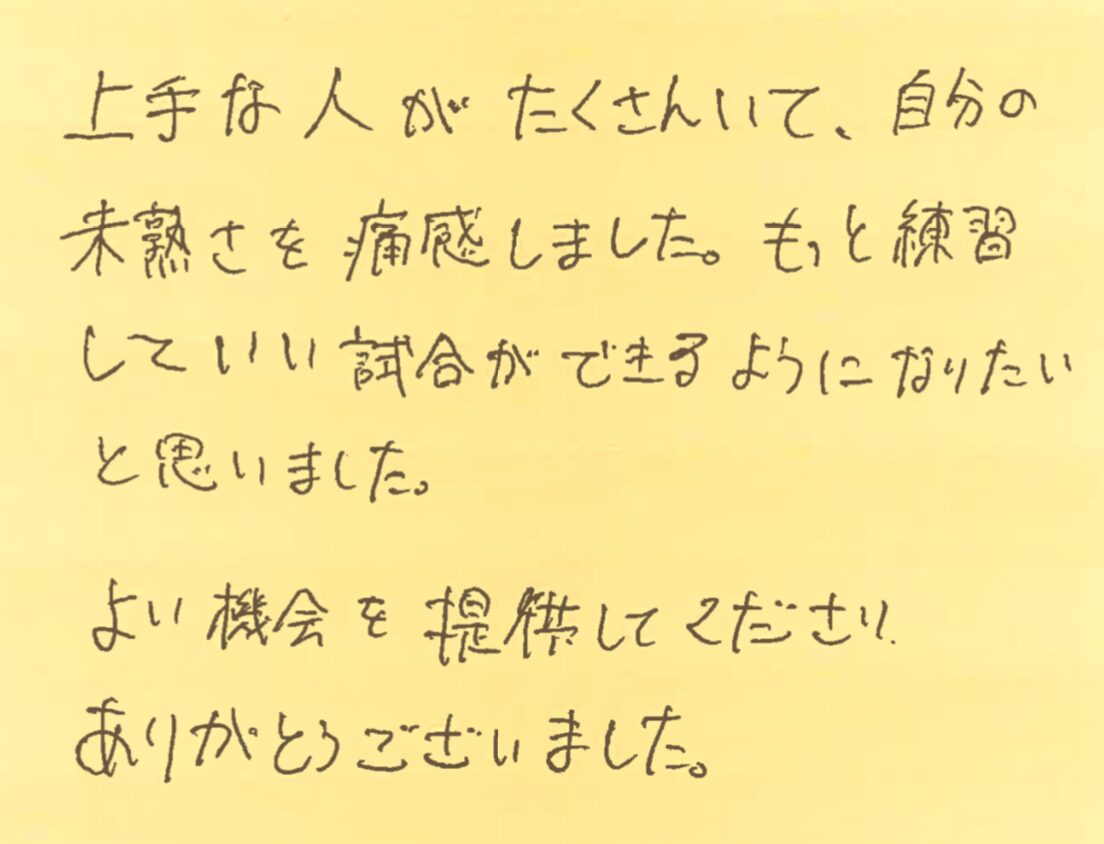 上手な人がたくさんいて、自分の
未熟さを痛感しました。もっと練習
していい試合ができるようになりたい
と思いました。
よい機会を提供してくださり、
ありがとうございました。